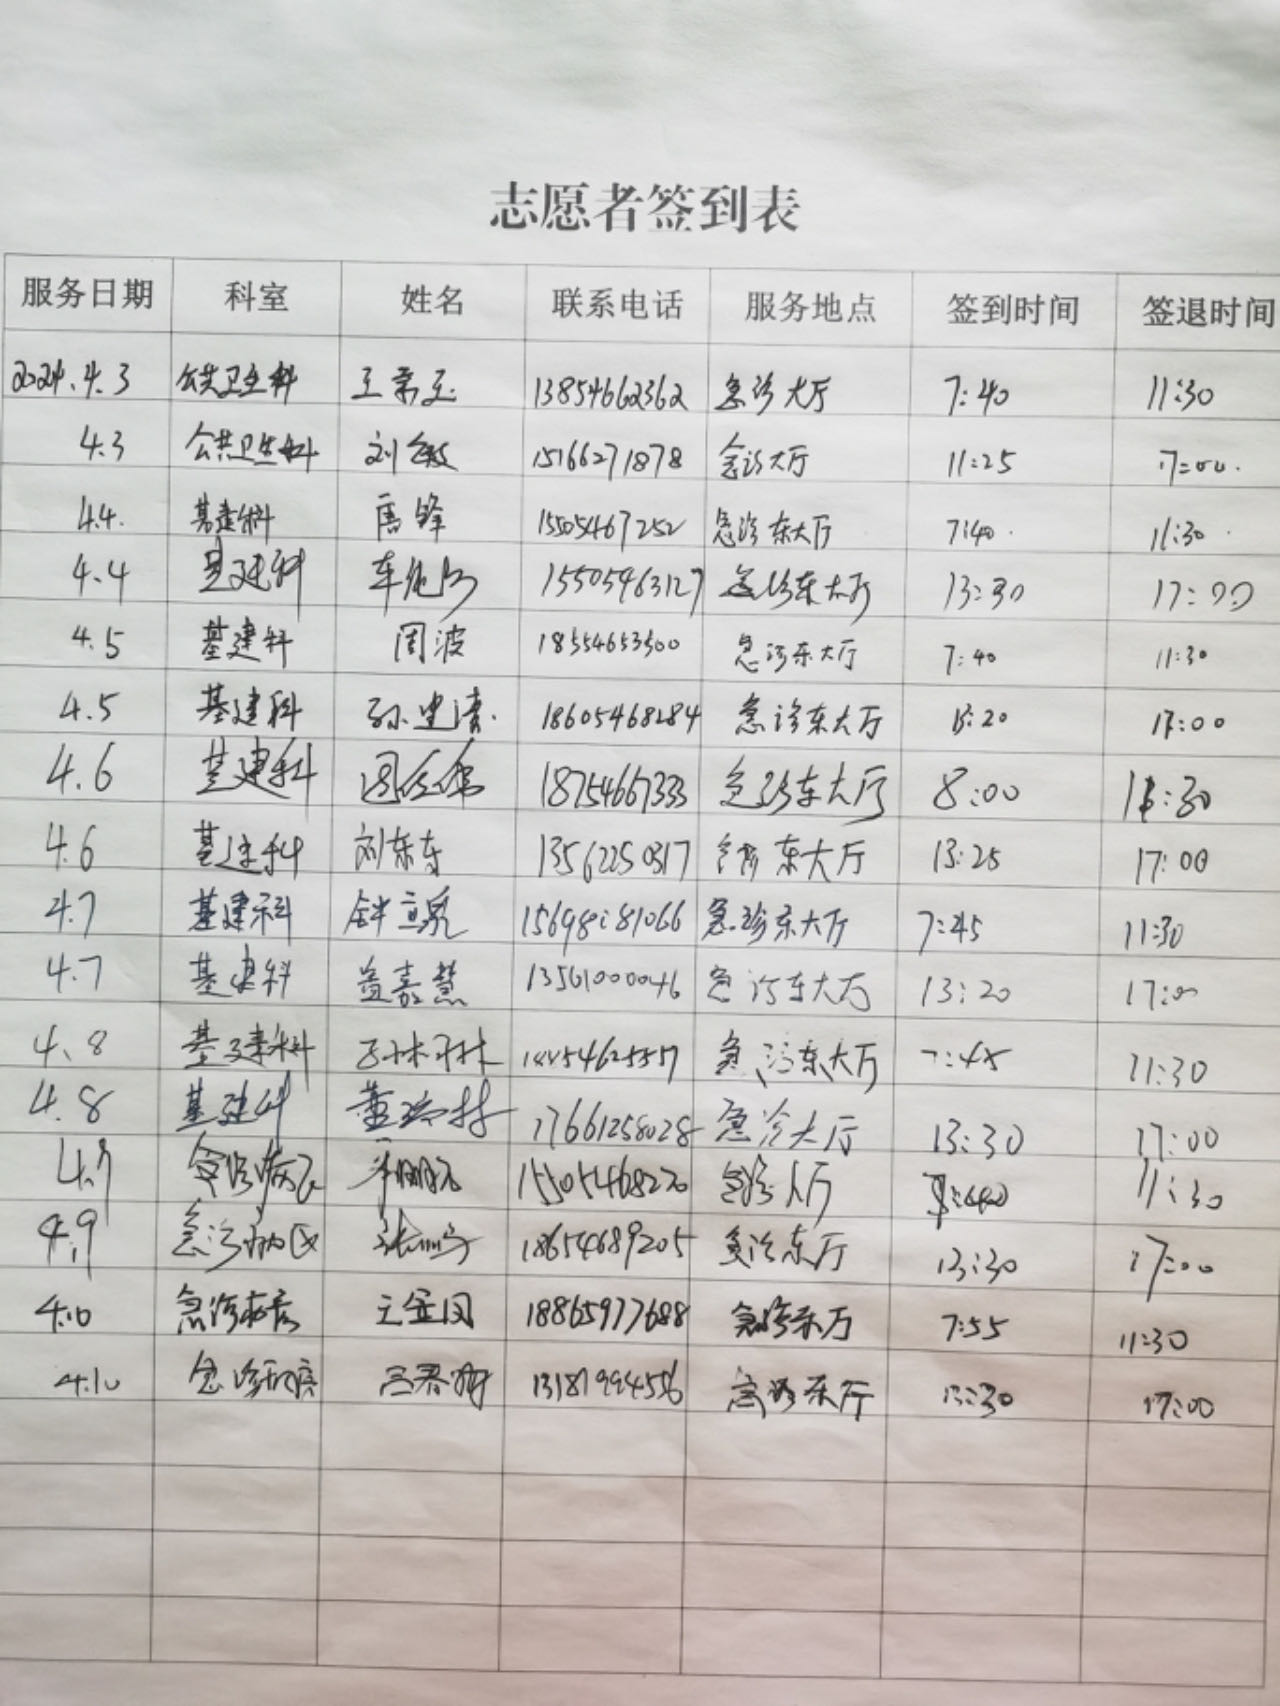 志愿者签到表
服务日期 科室 姓名 联系电话 服务地点 签到时间 签退时间
2024.4.3 公共卫生科 13854662362 急诊大厅 7:40 11:30
4.3 公共卫生科 刘敏 15166271878 急诊大厅 11:25 17:00.
4.4. 基建科 唐锋 15505467252 急诊东大厅 7:40. 11:30.
4.4 基建科 15505463127 急诊东大厅 13:30 17:00
4.5 基建科 周波 18554653500 急诊东大厅 7:40 11:30
4.5 基建科 孙建涛. 18605468284 急诊东大厅 13:20 17:00
4.6 基建科 18754667333 急诊东大厅 8:00 11:30
4.6 基建科 刘东东 13562250317 急诊东大厅 13:25 17:00
4.7 基建科 钟立泉 15698181066 急诊东大厅 7:45 11:30
4.7 基建科 盖嘉慧 13561000046 急诊东大厅 13:20 17:00
4.8 基建科 急诊东大厅 7:45 11:30
4.8 基建科 17661258028 急诊大厅 13:30 17:00
4.9 急诊病区 15505468220 急诊大厅 11:30
4.9 急诊病区 18654689205 急诊东厅 13:30 17:00
4.10 急诊病房 王亚囡 18865977688 急诊东厅 7:55 11:30
4.10 急诊病房 13181994556 急诊东厅 13:30 17:00